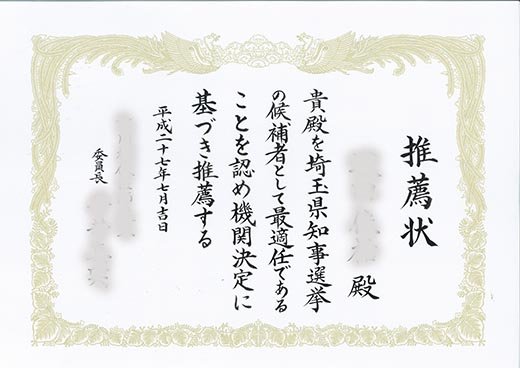 推薦状
殿
貴殿を埼玉県知事選挙
の候補者として最適任である
ことを認め機関決定に
基づき推薦する
平成二十七年七月吉日
委員長